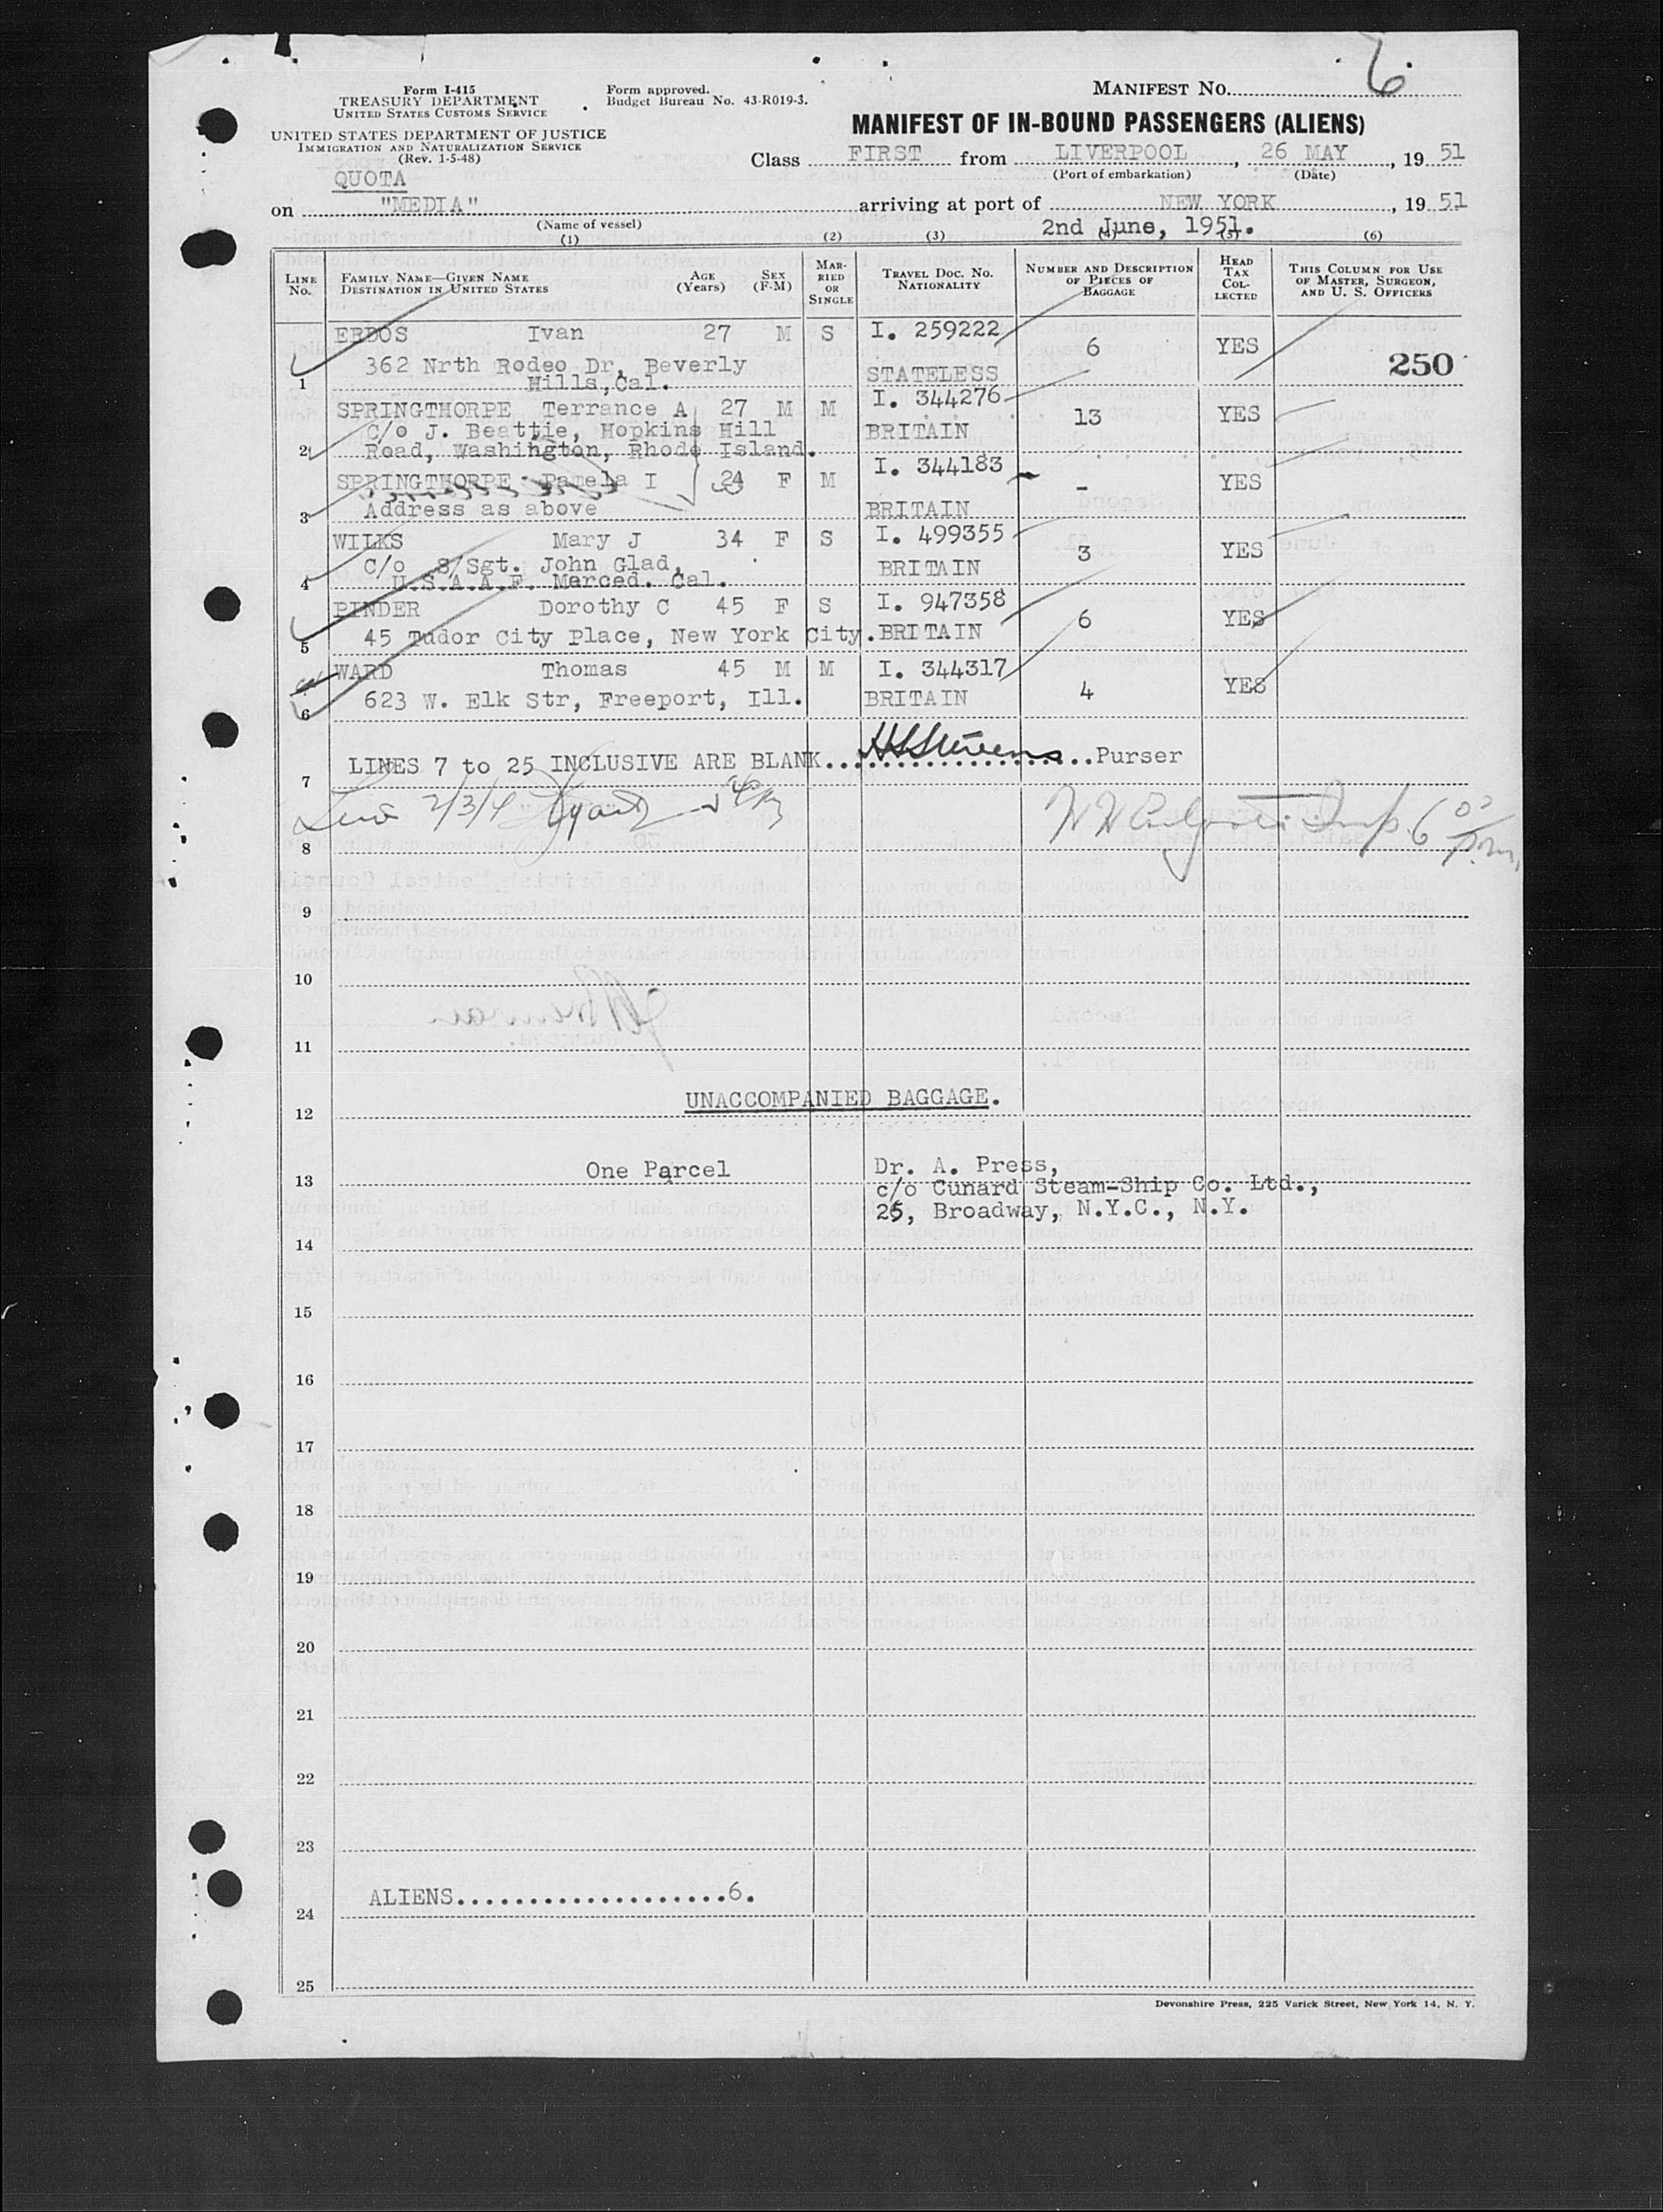 6
Form I-415
TREASURY DEPARTMENT
UNITED STATES CUSTOMS SERVICE
Form approved.
Budget Bureau No. 43-R019-3.
MANIFEST NO.
UNITED STATES DEPARTMENT OF JUSTICE
IMMIGRATION AND NATURALIZATION SERVICE
(Rev. 1-5-48)
MANIFEST OF IN-BOUND PASSENGERS (ALIENS)
Class FIRST from LIVERPOOL, 26 MAY, 19 51
(Port of embarkation) (Date)
QUOTA
on "MEDIA" arriving at port of NEW YORK, 19 51
(Name of vessel) 2nd June, 1951.
(1) (2) (3) (4) (5) (6)
LINE NO. FAMILY NAME—GIVEN NAME DESTINATION IN UNITED STATES AGE (Years) SEX (F-M) MARRIED OR SINGLE TRAVEL DOC. NO. NATIONALITY NUMBER AND DESCRIPTION OF PIECES OF BAGGAGE HEAD TAX COLLECTED THIS COLUMN FOR USE OF MASTER, SURGEON, AND U. S. OFFICERS
ERDOS Ivan 27 M S I. 259222 6 YES
362 Nrth Rodeo Dr, Beverly 250
1 Hills, Cal. STATELESS
SPRINGTHORPE Terrance A 27 M M I. 344276 13 YES
C/o J. Beattie, Hopkins Hill BRITAIN
2 Road, Washington, Rhode Island.
SPRINGTHORPE Pamela I 24 F M I. 344183 - YES
3 Address as above BRITAIN
WILKS Mary J 34 F S I. 499355 3 YES
C/o S/Sgt. John Glad, BRITAIN
4 U.S.A.A.F. Merced. Cal.
PINDER Dorothy C 45 F S I. 947358 6 YES
5 45 Tudor City Place, New York City. BRITAIN
WARD Thomas 45 M M I. 344317 4 YES
6 623 W. Elk Str, Freeport, Ill. BRITAIN
7 LINES 7 to 25 INCLUSIVE ARE BLANK. HSStevens Purser
2/3/4 Insp. 6 00 p.m.
8
9
10
11
12 UNACCOMPANIED BAGGAGE.
13 One Parcel Dr. A. Press,
c/o Cunard Steam-Ship Co. Ltd.,
25, Broadway, N.Y.C., N.Y.
14
15
16
17
18
19
20
21
22
23
ALIENS....................6.
24
25
Devonshire Press, 225 Varick Street, New York 14, N. Y.